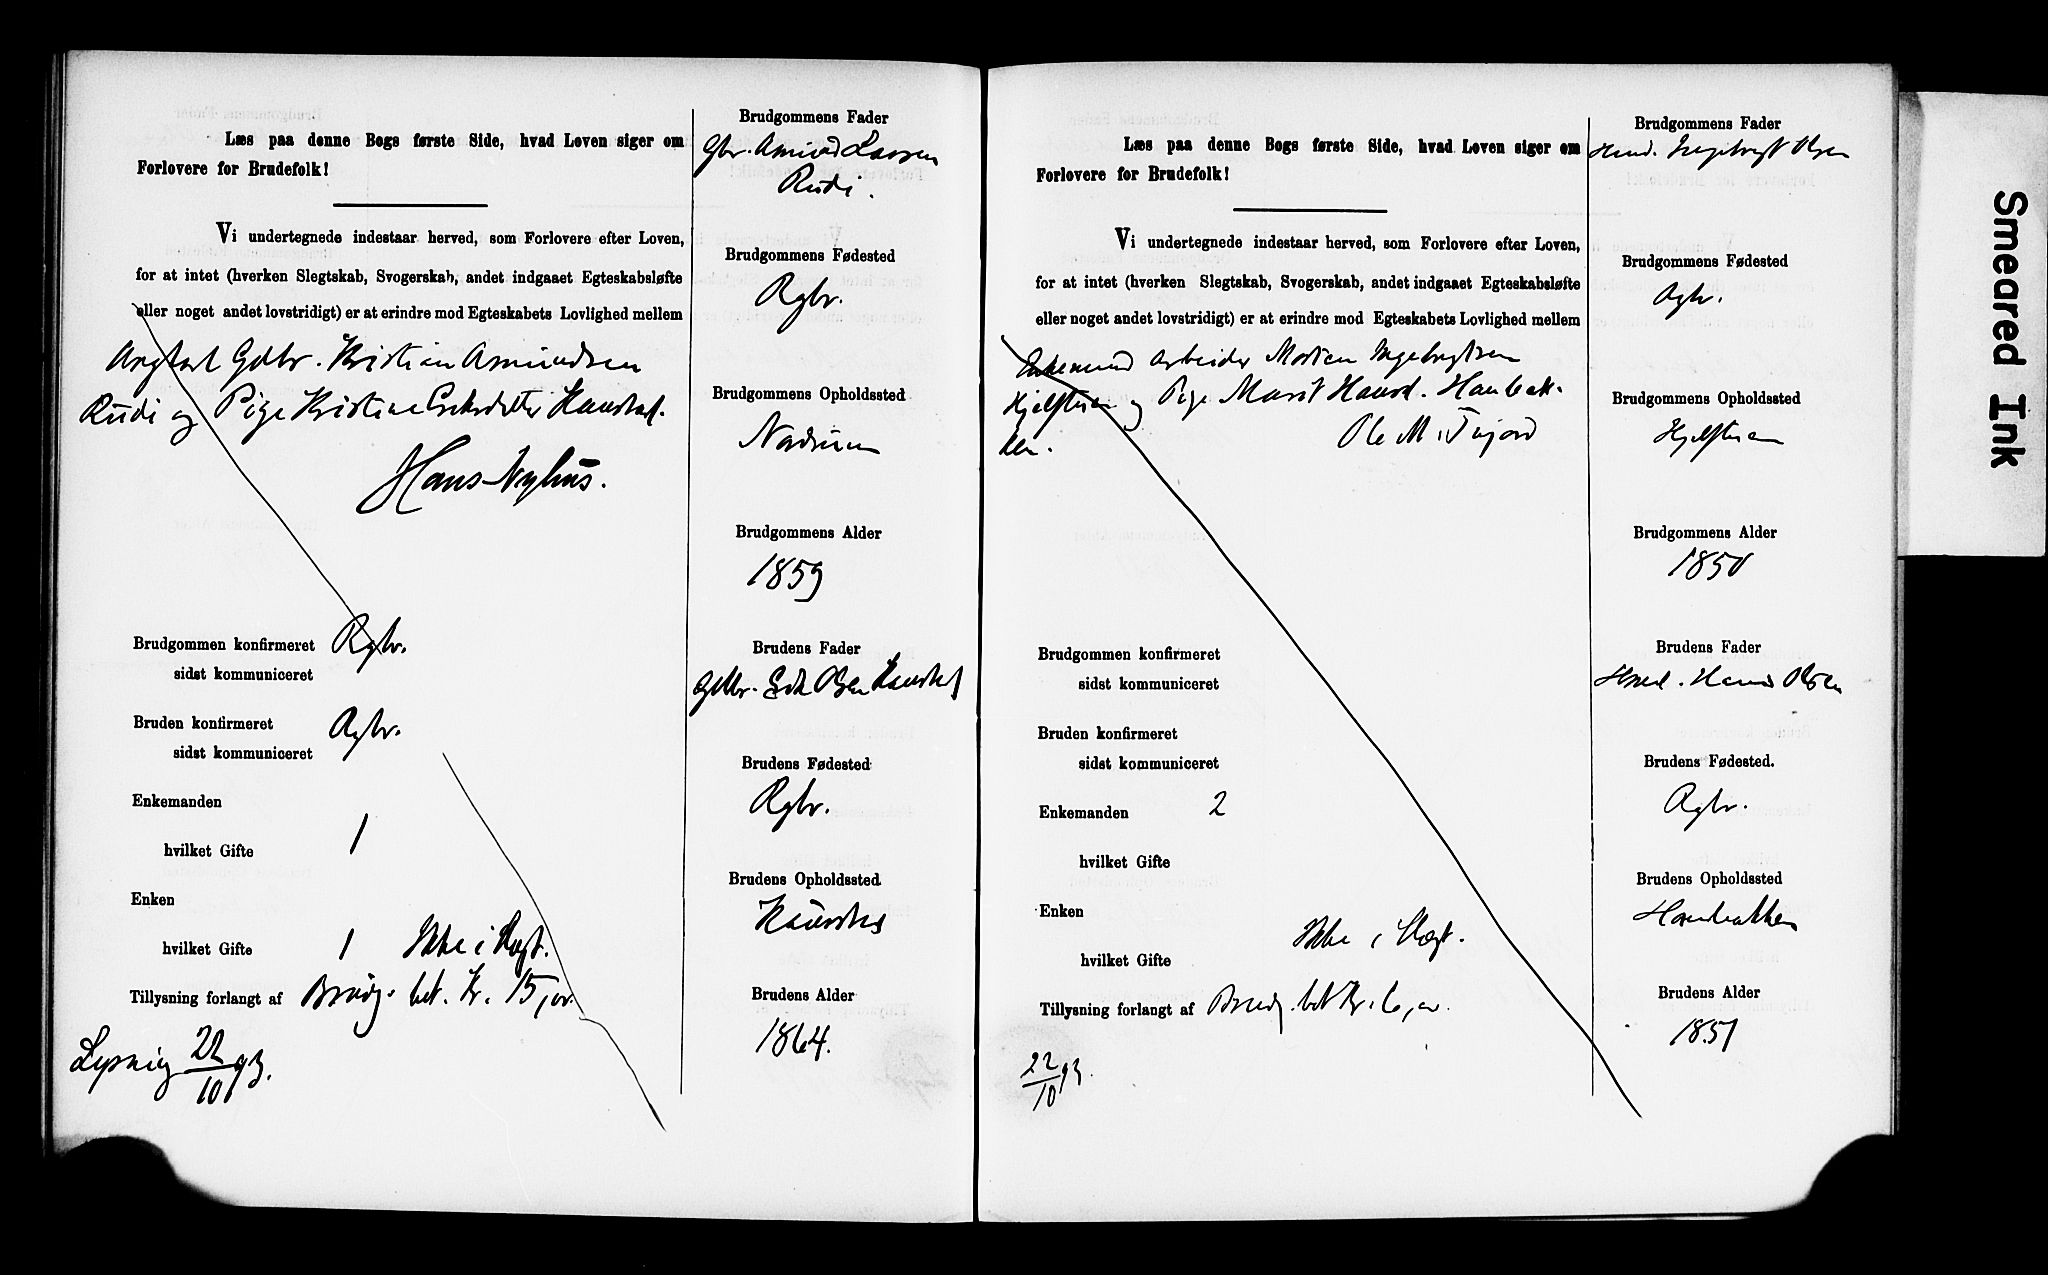 Læs paa denne Bogs første Side, hvad Loven siger om
Forlovere for Brudefolk!
Vi undertegnede indestaar herved, som Forlovere efter Loven,
for at intet (hverken Slegtskab, Svogerskab, andet indgaaet Egteskabsløfte
eller noget andet lovstridigt) er at erindre mod Egteskabets Lovlighed mellem
Ungkarl Gdbr. Kristian Amundsen
Rudi og Pige Kristine Eriksdatter
Hans Nyhus.
Brudgommen konfirmeret Rgbr.
sidst kommuniceret
Bruden konfirmeret Rgbr.
sidst kommuniceret
Enkemanden
hvilket Gifte 1
Enken
hvilket Gifte 1 Ikke i Slægt.
Tillysning forlangt af Brudg. bet. Kr. 15,00.
Lysning 22/10 93.
Brudgommens Fader
Gbr. Amund Larsen
Rudi.
Brudgommens Fødested
Rgbr.
Brudgommens Opholdssted
Nordrum
Brudgommens Alder
1859
Brudens Fader
Gdbr. Erik Olsen
Brudens Fødested
Rgbr.
Brudens Opholdssted
Brudens Alder
1864.
Læs paa denne Bogs første Side, hvad Loven siger om
Forlovere for Brudefolk!
Vi undertegnede indestaar herved, som Forlovere efter Loven,
for at intet (hverken Slegtskab, Svogerskab, andet indgaaet Egteskabsløfte
eller noget andet lovstridigt) er at erindre mod Egteskabets Lovlighed mellem
Enkemand Arbeider Morten Ingebrigtsen
og Pige Marit Hansd. Haubak-
ken.
Ole M.
Brudgommen konfirmeret
sidst kommuniceret
Bruden konfirmeret
sidst kommuniceret
Enkemanden 2
hvilket Gifte
Enken
Ikke i Slægt.
hvilket Gifte
Tillysning forlangt af Brudg. bet Kr. 6,00.
22/10 93.
Brudgommens Fader
Husmd. Ingebrigt Olsen
Brudgommens Fødested
Rgbr.
Brudgommens Opholdssted
Brudgommens Alder
1850
Brudens Fader
Husmd. Hans Olsen
Brudens Fødested.
Rgbr.
Brudens Opholdssted
Haubakken
Brudens Alder
1851
Smeared Ink